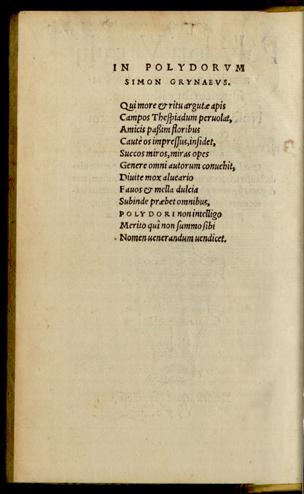 IN POLYDORVM
SIMON GRYNAEVS.
Qui more & ritu argutæ apis
Campos Thespiadum peruolat,
Amicis paßim floribus
Cautè os impressus, insidet,
Succos miros, miras opes
Genere omni autorum conuehit,
Diuite mox alueario
Fauos & mella dulcia
Subinde præbet omnibus,
POLYDORI non intelligo
Merito quî non summo sibi
Nomen uenerandum uendicet.